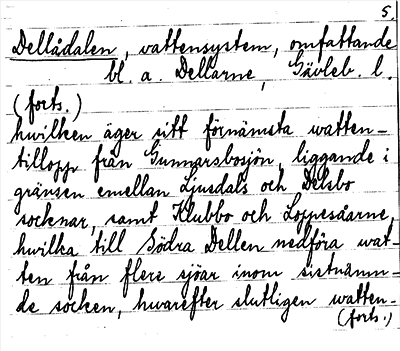 5.
Dellådalen, vattensystem, omfattande
bl. a. Dellarne, Gävleb. l.
(forts.)
hwilken äger sitt förnämsta watten-
tillopp från Gunnarsbosjön, liggande i
gränsen emellan Ljusdals och Delsbo
socknar, samt Klubbo och Loppesåarne,
hwilka till Södra Dellen nedföra wat-
ten från flere sjöar inom sistnämn-
de socken, hwarefter slutligen watten-
(forts.)